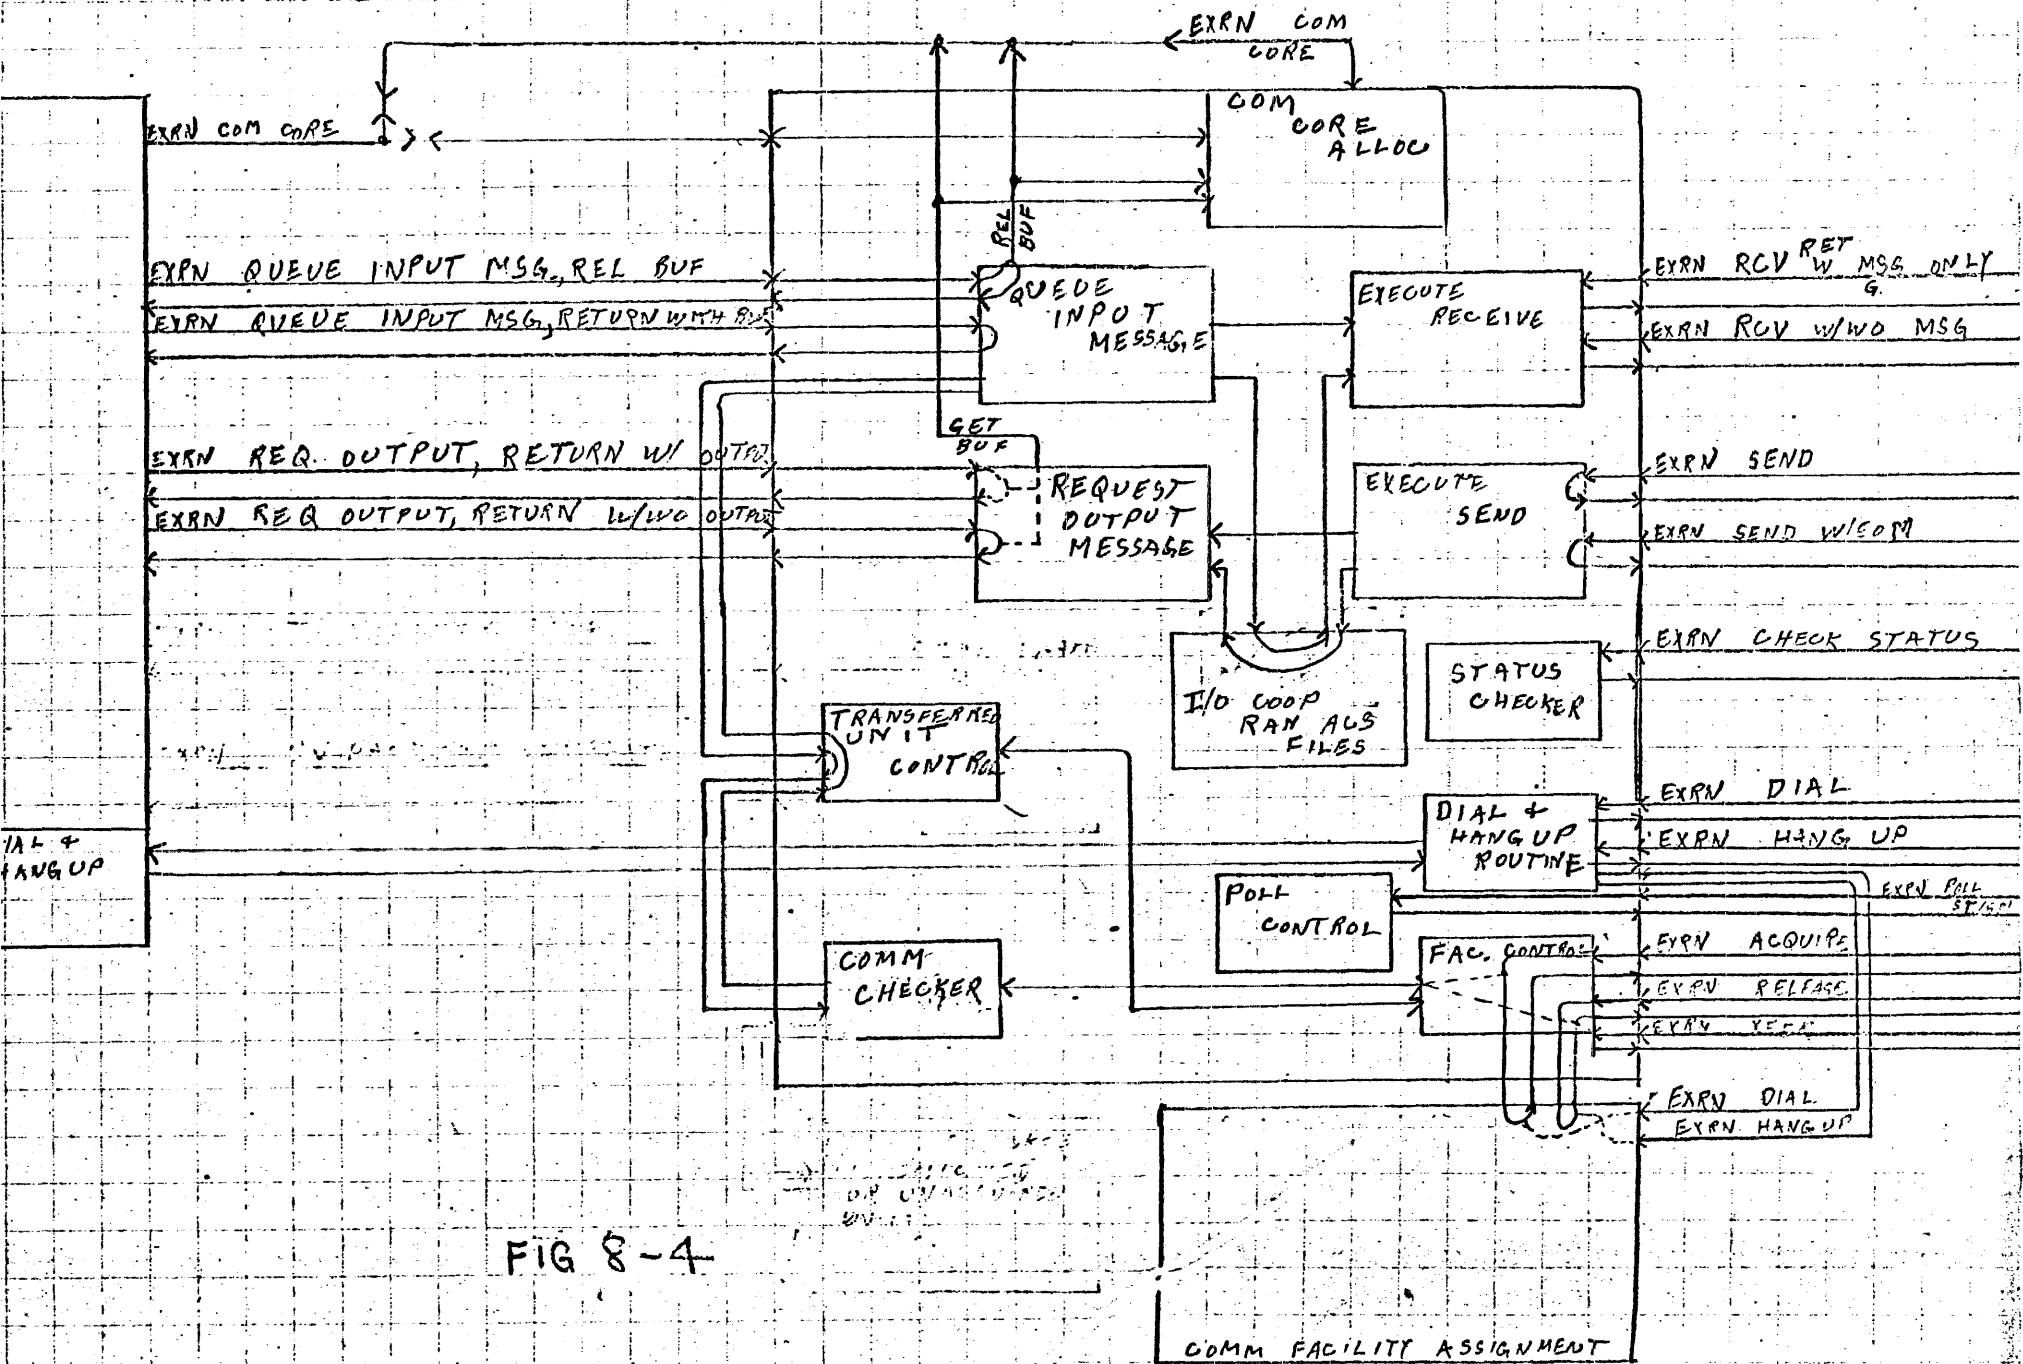 EXRN COM
CORE
EXRN COM CORE
COM
CORE
ALLOC
REL
BUF
EXRN QUEUE INPUT MSG, REL BUF
EXRN QUEUE INPUT MSG, RETURN WITH BUF
QUEUE
INPUT
MESSAGE
EXECUTE
RECEIVE
EXRN RCV RET W MSG ONLY
G.
EXRN RCV W/WO MSG
GET
BUF
EXRN REQ. OUTPUT, RETURN W/ OUTPUT
EXRN REQ OUTPUT, RETURN W/WO OUTPUT
REQUEST
OUTPUT
MESSAGE
EXECUTE
SEND
EXRN SEND
EXRN SEND W/COM
I/O COOP
RAN ACS
FILES
STATUS
CHECKER
EXRN CHECK STATUS
TRANSFERRED
UNIT
CONTROL
DIAL &
HANGUP
ROUTINE
EXRN DIAL
EXRN HANG UP
IAL &
HANGUP
POLL
CONTROL
EXRN POLL
COMM
CHECKER
FAC. CONTROL
EXRN ACQUIRE
EXRN RELEASE
EXRN
EXRN DIAL
EXRN HANGUP
OR
FIG 8-4
COMM FACILITY ASSIGNMENT